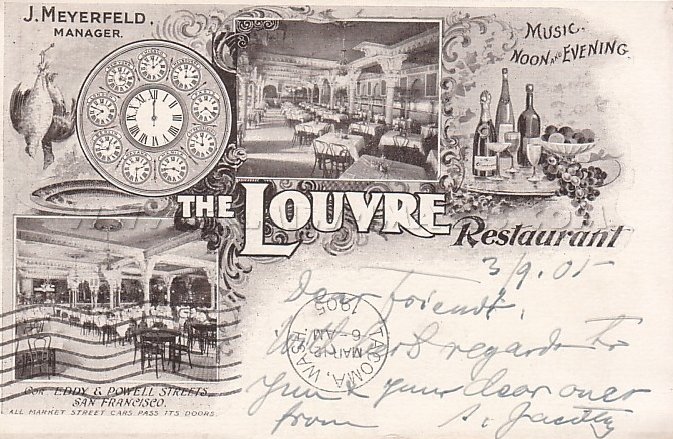 J. MEYERFELD,
MANAGER.
MUSIC.
NOON AND EVENING.
THE LOUVRE Restaurant
3/9. 05
Dear Friends,
regards to
you & your dear ones
from
TACOMA, WASH.
MAR 12
6-AM
1905
COR. EDDY & POWELL STREETS,
SAN FRANCISCO.
ALL MARKET STREET CARS PASS ITS DOORS.